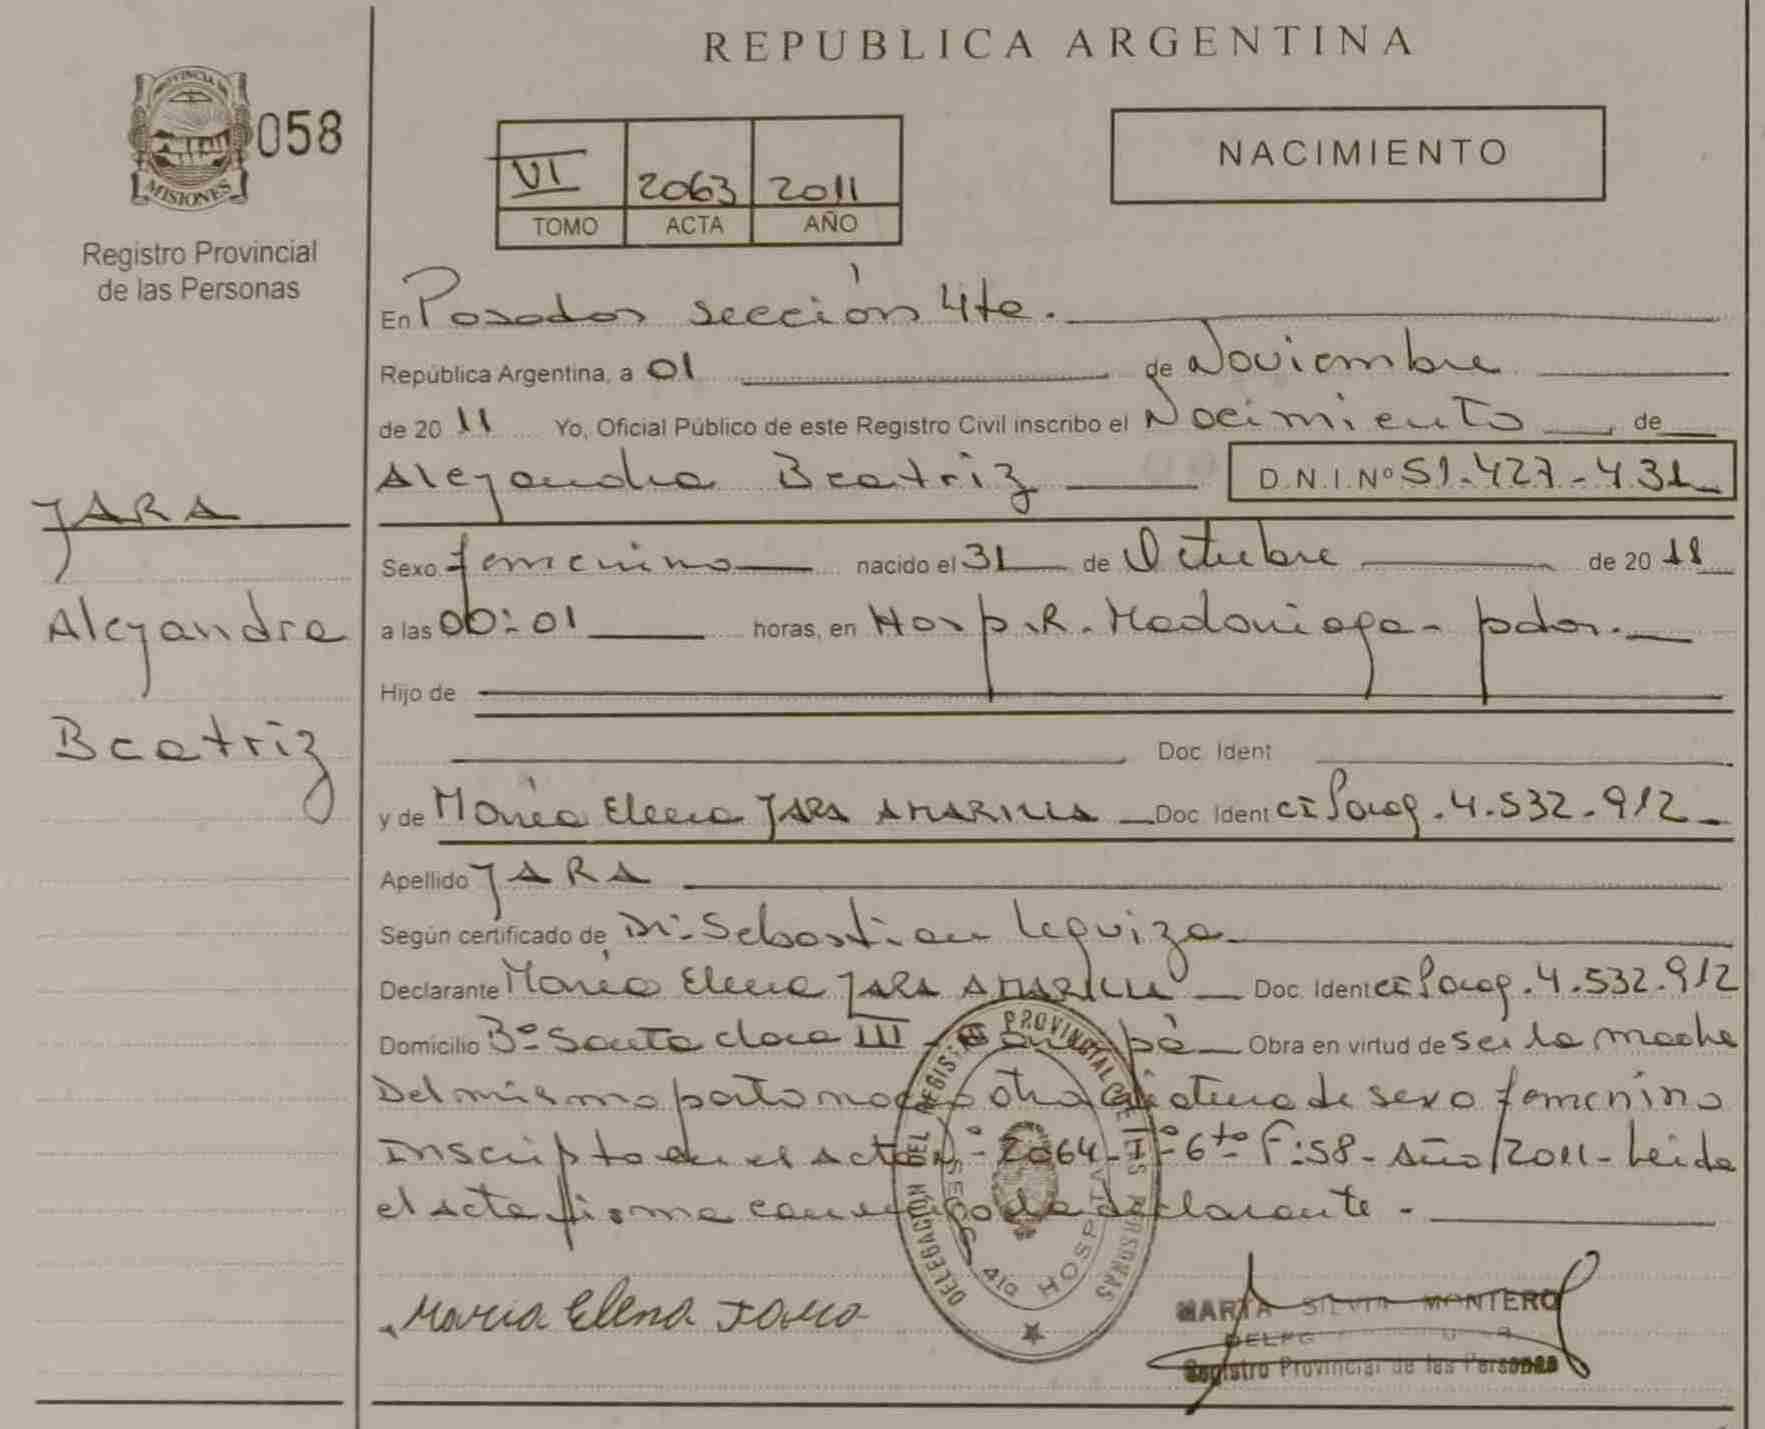 REPUBLICA ARGENTINA
PROVINCIA DE
MISIONES
058
Registro Provincial
de las Personas
VI 2063 2011
TOMO ACTA AÑO
NACIMIENTO
En Posadas sección 4ta.
República Argentina, a 01 de Noviembre
de 2011 Yo, Oficial Público de este Registro Civil inscribo el Nacimiento de
Alejandra Beatriz D.N.I.Nº 51.427.431
JARA
Alejandra
Beatriz
Sexo femenino nacido el 31 de Octubre de 2011
a las 00:01 horas, en Hosp. R. Madariaga - pdas.
Hijo de
Doc. Ident
y de María Elena JARA AMARILLA Doc. Ident CI Parag. 4.532.912
Apellido JARA
Según certificado de Dr. Sebastian Leguiza
Declarante María Elena JARA AMARILLA Doc. Ident CI Parag. 4.532.912
Domicilio Bº Santa Clara III - Obra en virtud de ser la madre
Del mismo parto nació otra criatura de sexo femenino
Inscripta en el acta Nº 2064 - Tº 6to F:58 - Año 2011 - Leida
el acta firma conmigo la declarante.
DELEGACION DEL REGISTRO PROVINCIAL DE LAS PERSONAS
SECC. 4ta HOSPITAL
Maria Elena Jara
MARTA SILVIA MONTERO
Registro Provincial de las Personas